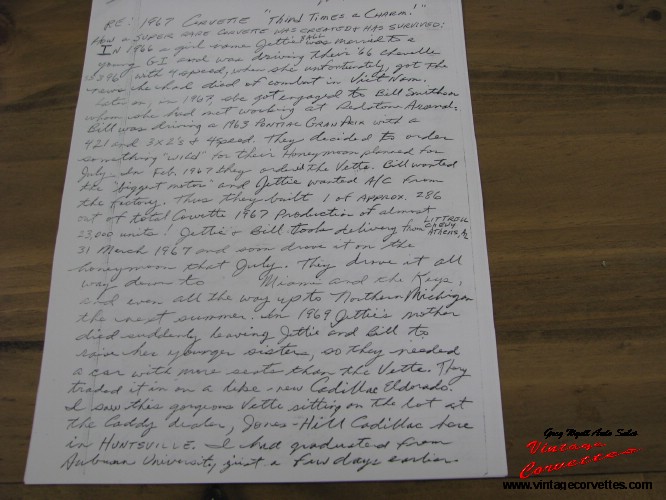 RE: 1967 CORVETTE "THIRD TIMES A CHARM!"
HOW A SUPER RARE CORVETTE WAS CREATED & HAS SURVIVED:
IN 1966 a girl name Jettie was married to a
young GI and was driving their '66 chevelle
SS396, with 4 speed, when she unfortunately, got the
news he had died of combat in Viet Nam.
Later on, in 1967, she got engaged to Bill Smithson
whom she had met working at Redstone Arsenal.
Bill was driving a 1963 PONTIAC GRAN PRIX with a
421 and 3x2's & 4 speed. They decided to order
something "wild" for their Honeymoon planned for
July. In Feb. 1967 they ordered the Vette. Bill wanted
the "biggest motor" and Jettie wanted A/C from
the factory. Thus they built 1 of APPROX. 286
out of total Corvette 1967 Production of almost
23,000 units! Jettie & Bill took delivery from LITTRELL CHEVY ATHENS, AL
31 March 1967 and soon drove it on the
honeymoon that July. They drove it all
way down to Miami and the Keys,
and even all the way up to Northern Michigan
the next summer. In 1969 Jettie's mother
died suddenly leaving Jettie and Bill to
raise her younger sisters, so they needed
a car with more seats than the Vette. They
traded it in on a like-new Cadillac Eldorado.
I saw this gorgeous Vette sitting on the lot at
the Caddy dealer, Jones-Hill Cadillac here
in HUNTSVILLE. I had graduated from
Auburn University just a few days earlier
Greg Wyatt Auto Sales
Vintage
Corvettes
www.vintagecorvettes.com